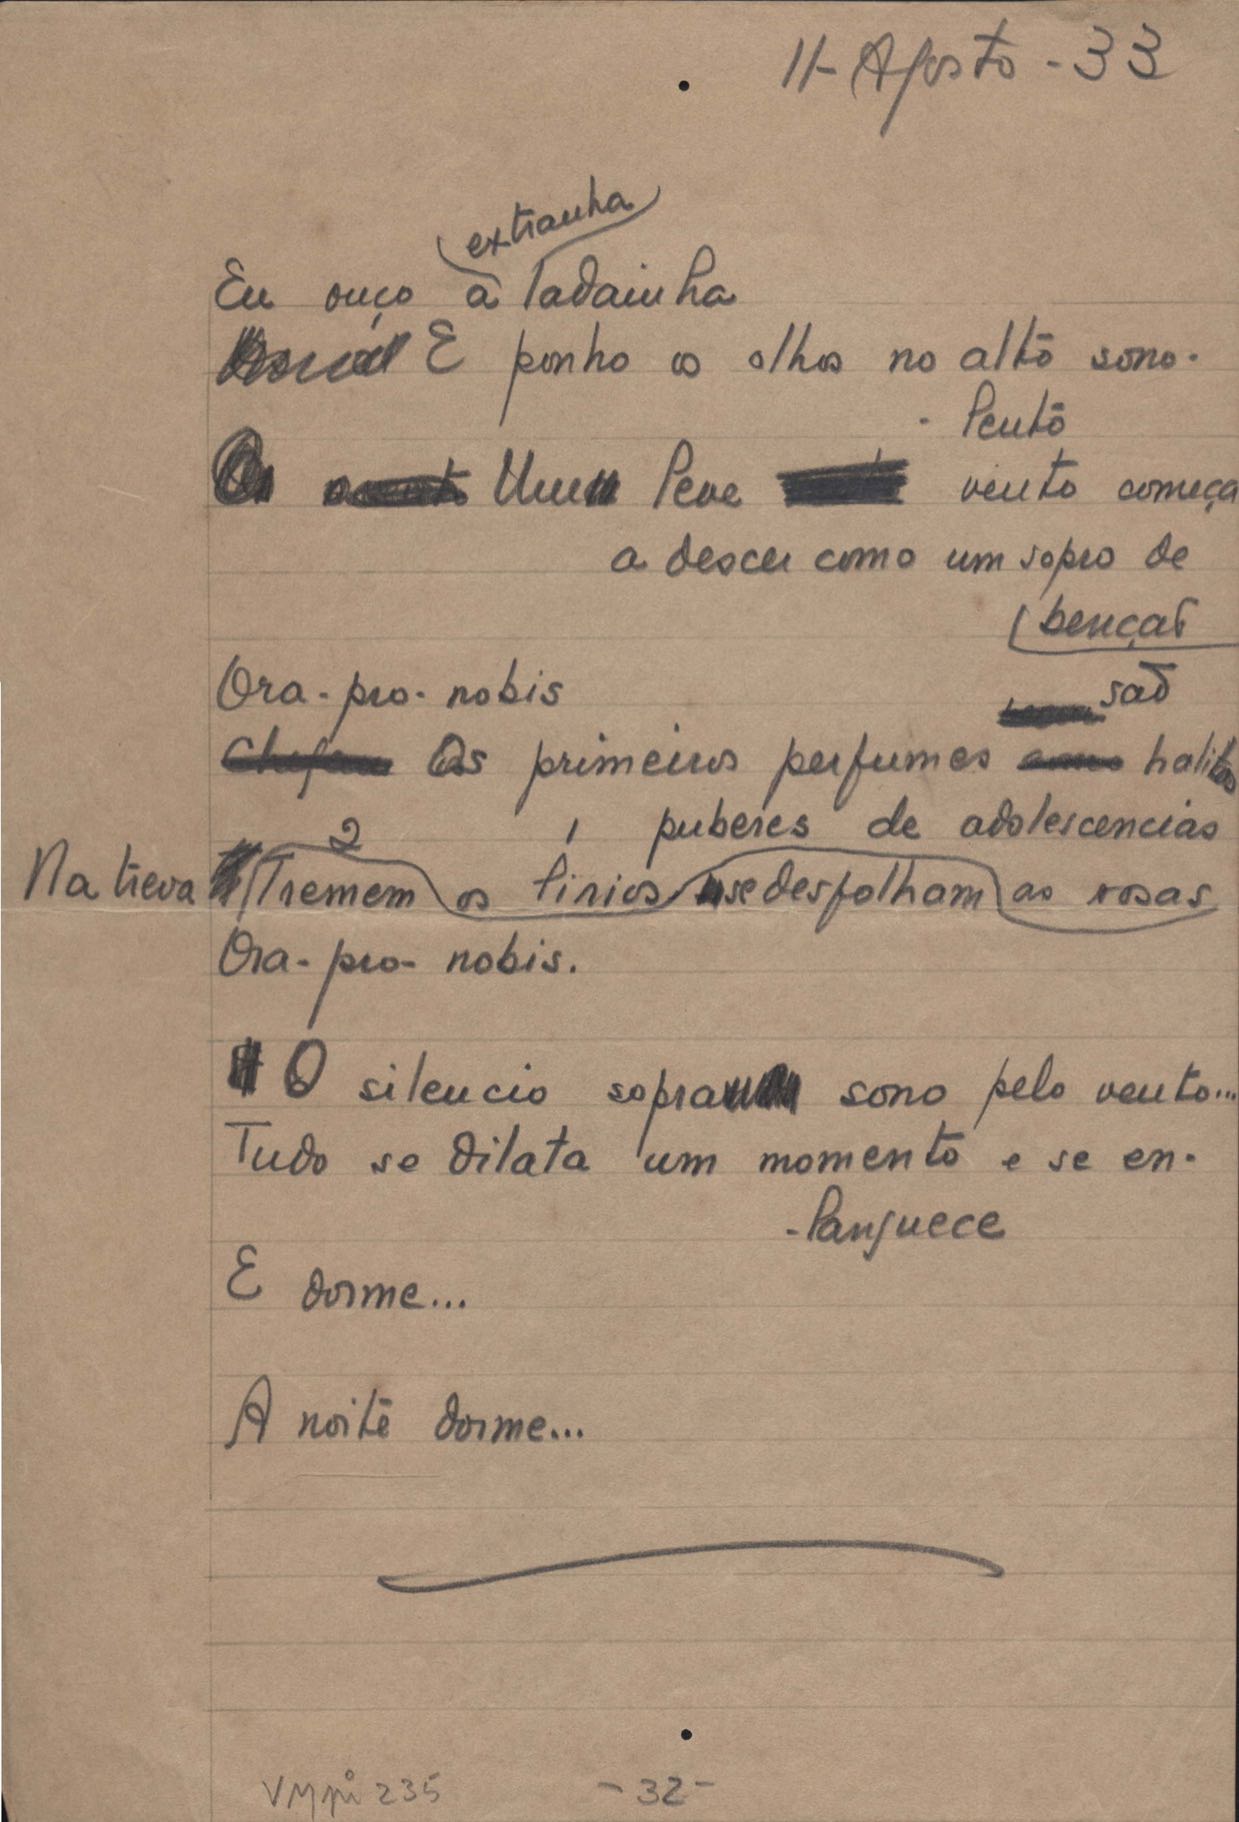 11 - Agosto - 33
extranha
Eu ouço a ladainha
E ponho os olhos no alto sono-
- lento
Um leve vento começa
a descer como um sopro de
bençaõ
Ora - pro - nobis
saõ
Os primeiros perfumes halitos
puberes de adolescencias
2 1
Na treva Tremem os lirios se desfolham as rosas
Ora - pro - nobis.
O silencio sopra sono pelo vento...
Tudo se dilata um momento e se en-
- languece
E dorme...
A noite dorme...
VMpi 235 - 32 -